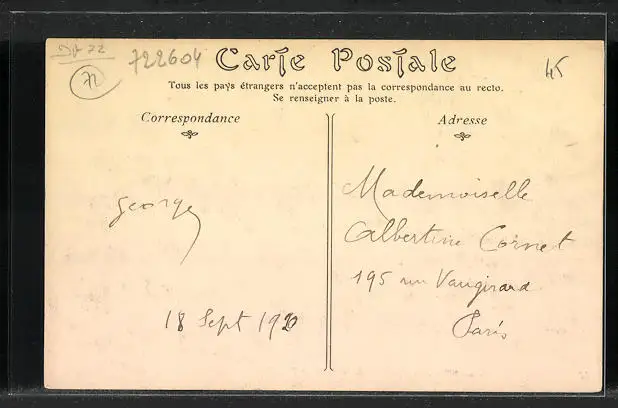 Dpt 72
72
722604
Carte Postale
45
Tous les pays étrangers n'acceptent pas la correspondance au recto.
Se renseigner à la poste.
Correspondance
Georges
18 Sept 1920
Adresse
Mademoiselle
Albertine Cornet
195 rue Vaugirard
Paris